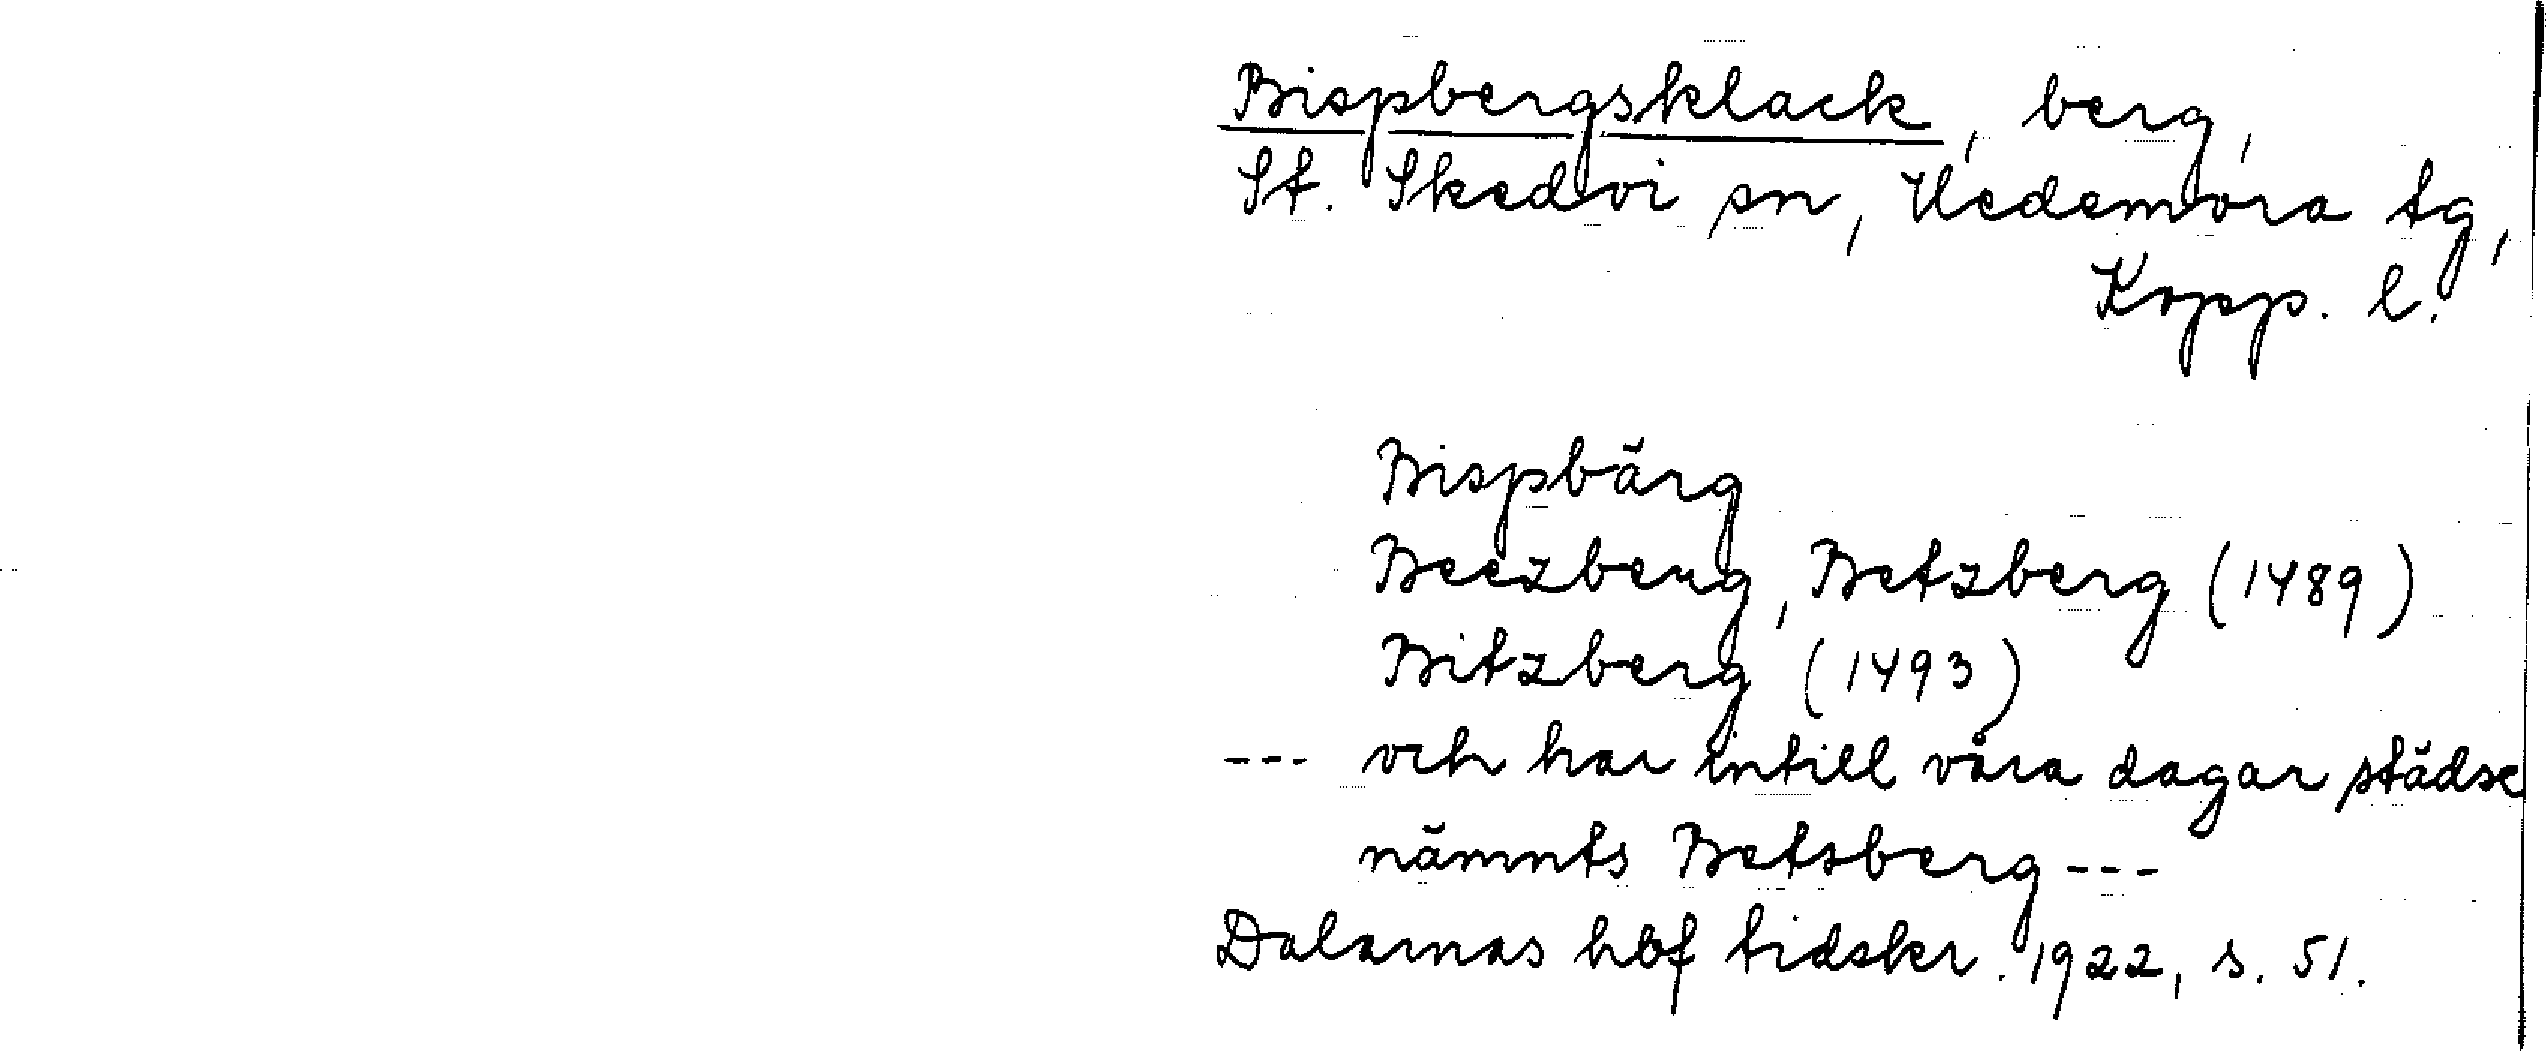 Bispbergsklack, berg,
St. Skedvi sn, Hedemora tg,
Kopp. l.
Bispbärg
Beezberg, Betzberg (1489)
Bitzberg (1493)
--- och har intill våra dagar städse
nämnts Betsberg ---
Dalarnas hbf tidskr. 1922, s. 51.